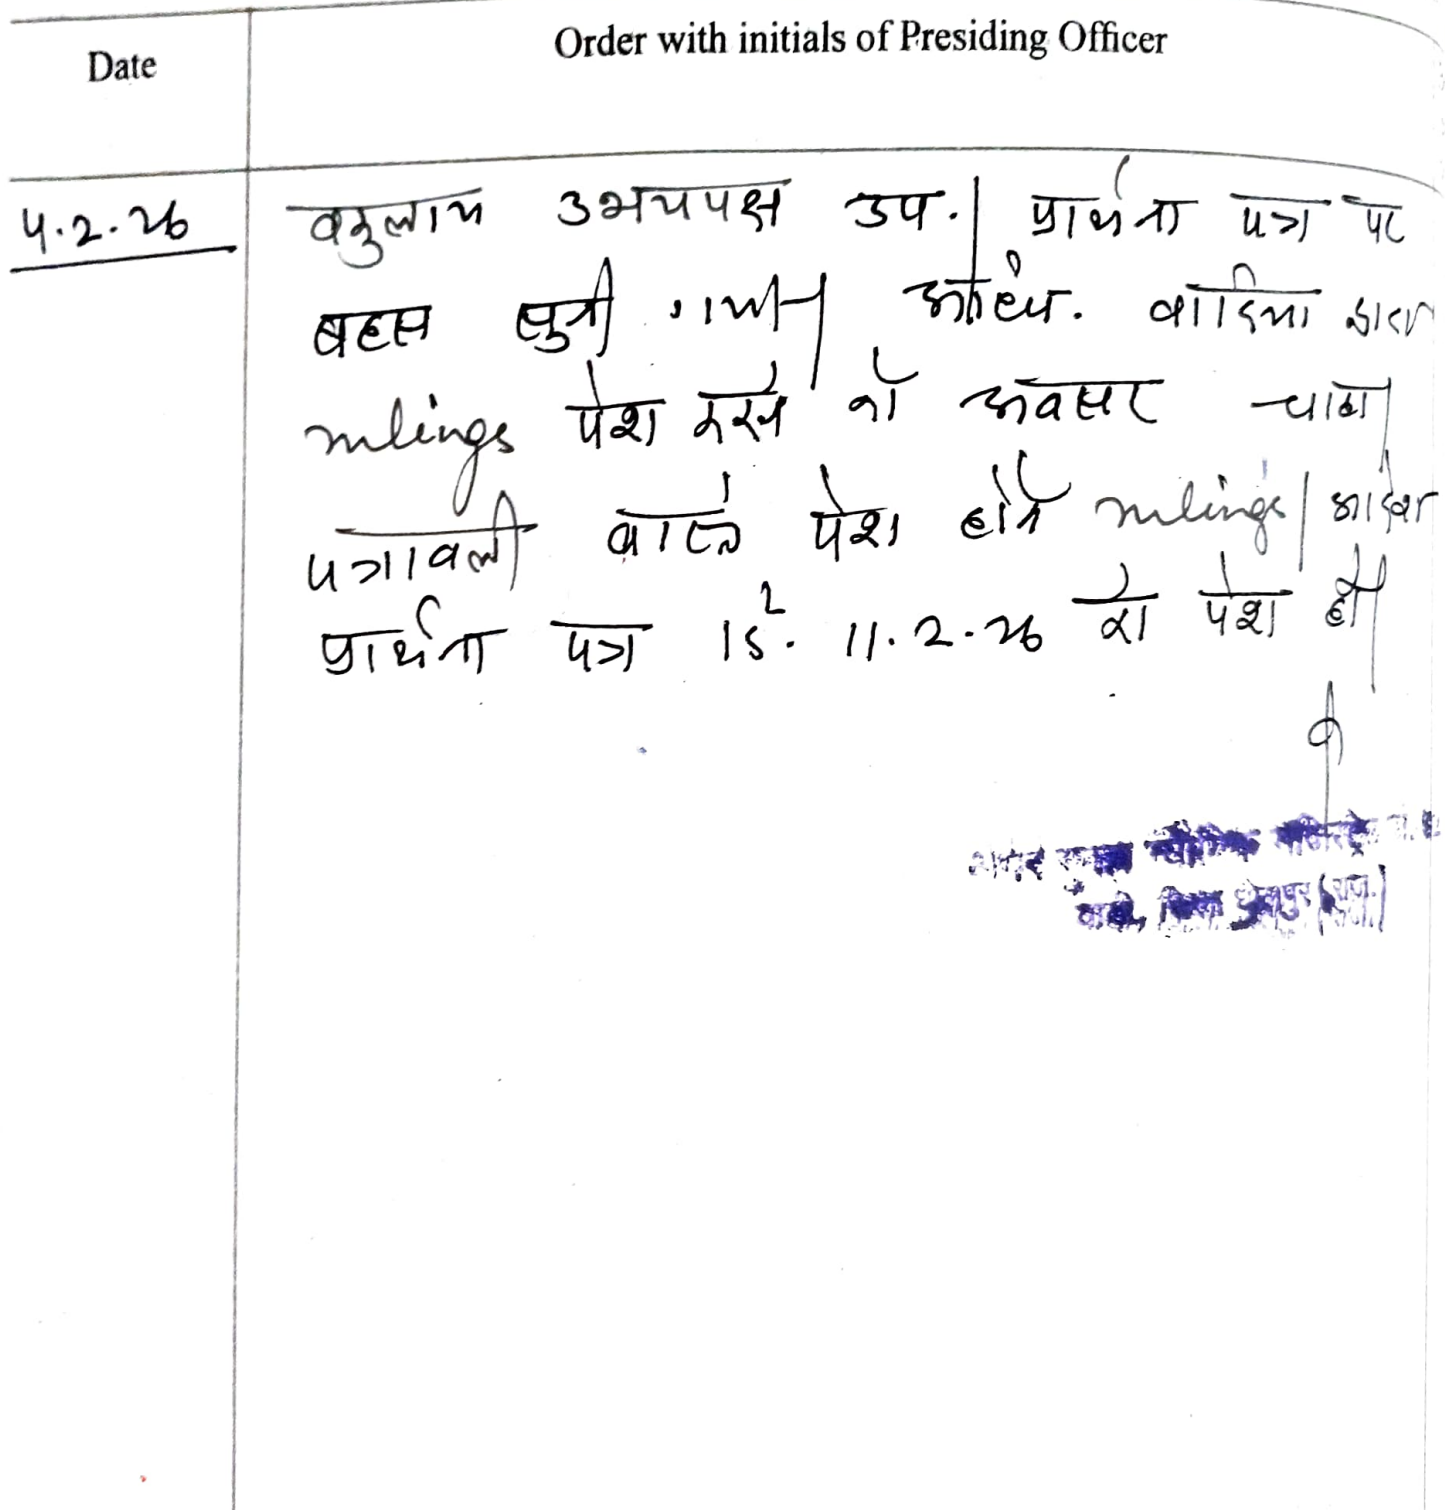 Date
Order with initials of Presiding Officer
4.2.26
वकुलाय उभयपक्ष उप.| प्रार्थना पत्र पर
बहस सुनी गयी| अधि. वादिया द्वारा
rulings पेश करने को अवसर चाहा|
पत्रावली वास्ते पेश होने rulings| आदेश
प्रार्थना पत्र दि. 11.2.26 को पेश हो|
न्यायिक मजिस्ट्रेट
बाड़ी, जिला धौलपुर (राज.)